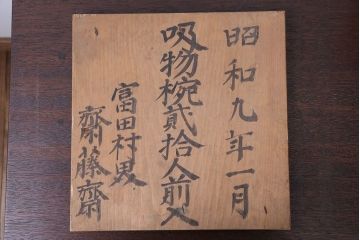 昭和九年一月
吸物椀貳拾人前入
富田村男
齋藤齋